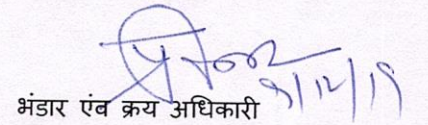 9/12/19
भंडार एंव क्रय अधिकारी